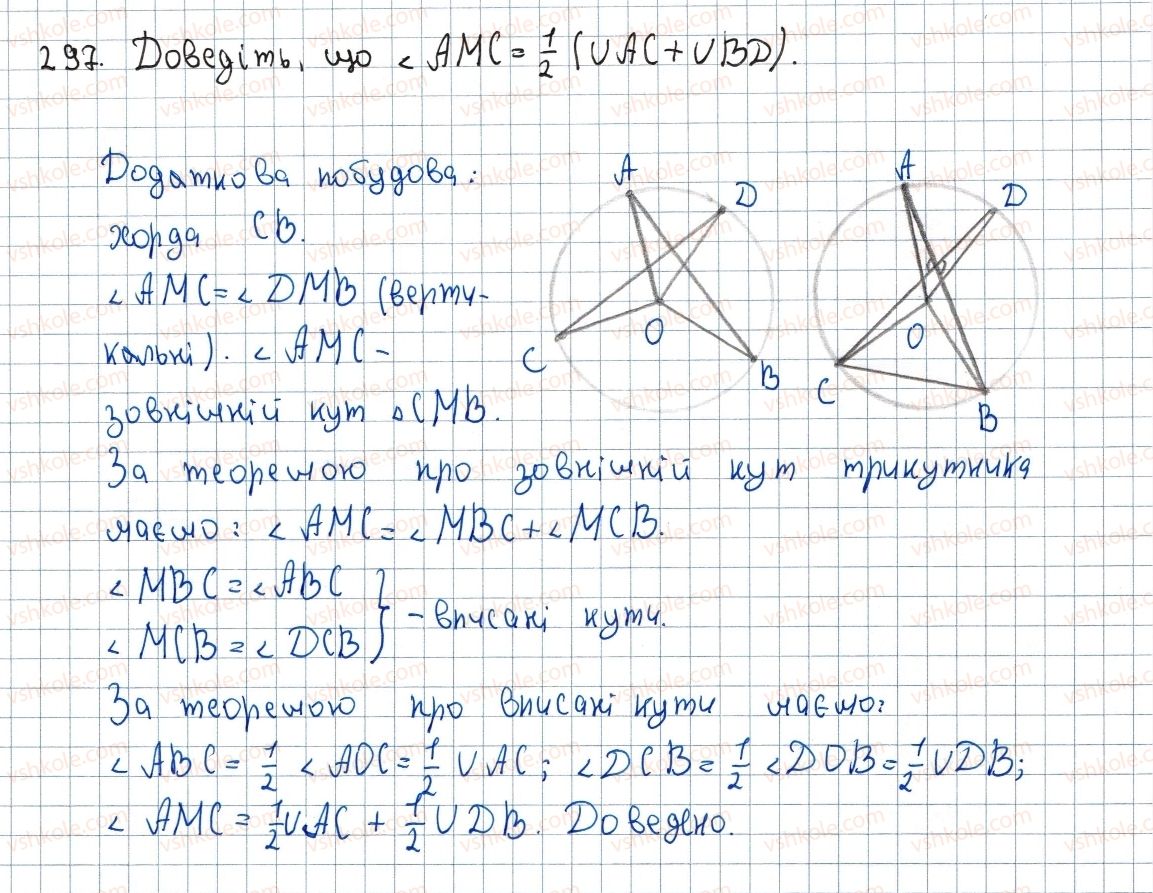 297. Доведіть, що ∠AMC = 1/2 (∪AC + ∪BD).
Додаткова побудова:
хорда CB.
∠AMC = ∠DMB (верти-
кальні). ∠AMC -
зовнішній кут △CMB.
A
D
O
C
B
A
D
O
C
B
За теоремою про зовнішній кут трикутника
маємо: ∠AMC = ∠MBC + ∠MCB.
∠MBC = ∠ABC
∠MCB = ∠DCB } - вписані кути.
За теоремою про вписані кути маємо:
∠ABC = 1/2 ∠AOC = 1/2 ∪AC; ∠DCB = 1/2 ∠DOB = 1/2 ∪DB;
∠AMC = 1/2 ∪AC + 1/2 ∪DB. Доведено.
vshkole.com